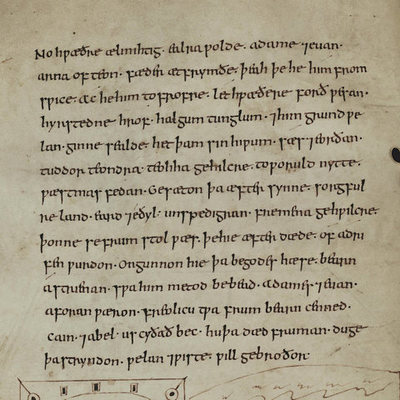 No hƿæðre ælmihtig· ealra ƿolde· adame ⁊ euan·
arna ofteon· fæder æt frymðe· þeah þe he him from
sƿice· ac he him to frofre· let hƿæðere forð ƿesan·
hyrstedne hrof· halgum tunglum· ⁊ him grund ƿe
lan· ginne sealde· het þam sin hiƿum· sæs ⁊ eorðan·
tuddor teondra· teohha gehƿilcre· to ƿoruld nytte·
ƿæstmas fedan· Gesæton þa æfter synne· sorgful
re land· eard ⁊ eðyl· unspedigran· fremena gehƿilcre·
þonne se frum stol ƿæs· þe hie æfter dæde· of adri
fen ƿurdon· Ongunnon hie þa be godes hæse· bearn
astrienan· sƿa him metod bebead· adames ⁊ euan·
aforan ƿæron· freolicu tƿa frum bearn cenned·
cain· ⁊ abel· us cyðað bec· hu þa dæd fruman· duge
þa stryndon· ƿelan ⁊ ƿiste· ƿill gebroðor·